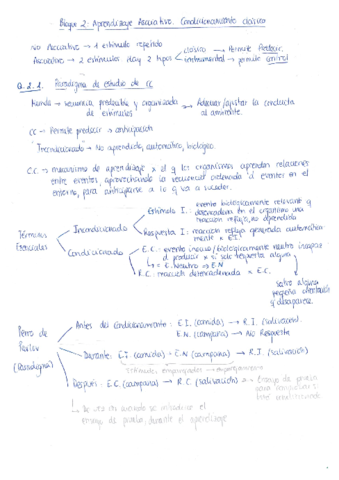 Bloque 2: Aprendizaje Asociativo. Condicionamiento clásico
No Asociativo → 1 estímulo repetido
Asociativo → 2 estímulos. Hay 2 tipos
clásico → Permite Predecir.
instrumental → permite control
2.1. Paradigma de estudio de CC
Mundo → secuencia predecible y organizada de estímulos
Adecuar/ajustar la conducta al ambiente.
CC → Permite predecir → anticipación
Incondicionado → No aprendido, automático, biológico.
C.C. → mecanismo de aprendizaje x el q los organismos aprenden relaciones
entre eventos, aprovechando la secuencia ordenada d eventos en el
entorno, para anticiparse a lo q va a suceder.
Términos Esenciales
Incondicionado
Estímulo I.: evento biológicamente relevant q
desencadena en el organismo una
reacción refleja, no aprendida
Respuesta I.: reacción refleja generada automáticamente x E.I.
Condicionado
E.C. → evento inocuo/biológicamente neutro incapaz
d producir x sí solo respuesta alguna
→ = E. Neutro → E.N
R.C. → reacción desencadenada x E.C.
salvo alguna
pequeña
y desaparece.
Perro de Pavlov
(Paradigma)
Antes del Condicionamiento: E.I. (comida) → R.I. (salivación).
E.N. (campana) → No Respuesta
Durante: E.I. (comida) + E.N (campana) → R.I. (salivación)
Estímulos emparejados →
Después: E.C. (campana) → R.C. (salivación) → Ensayo de prueba
para comprobar si
se ha condicionado
→ Se da cuando se introduce el
ensayo de prueba, durante el aprendizaje